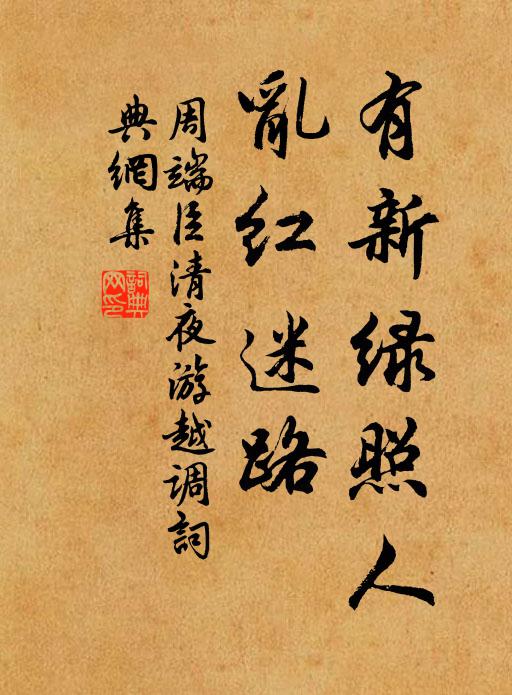 有新绿照人
亂红迷路
周端臣清夜游越调詞
典網集
詞典网印